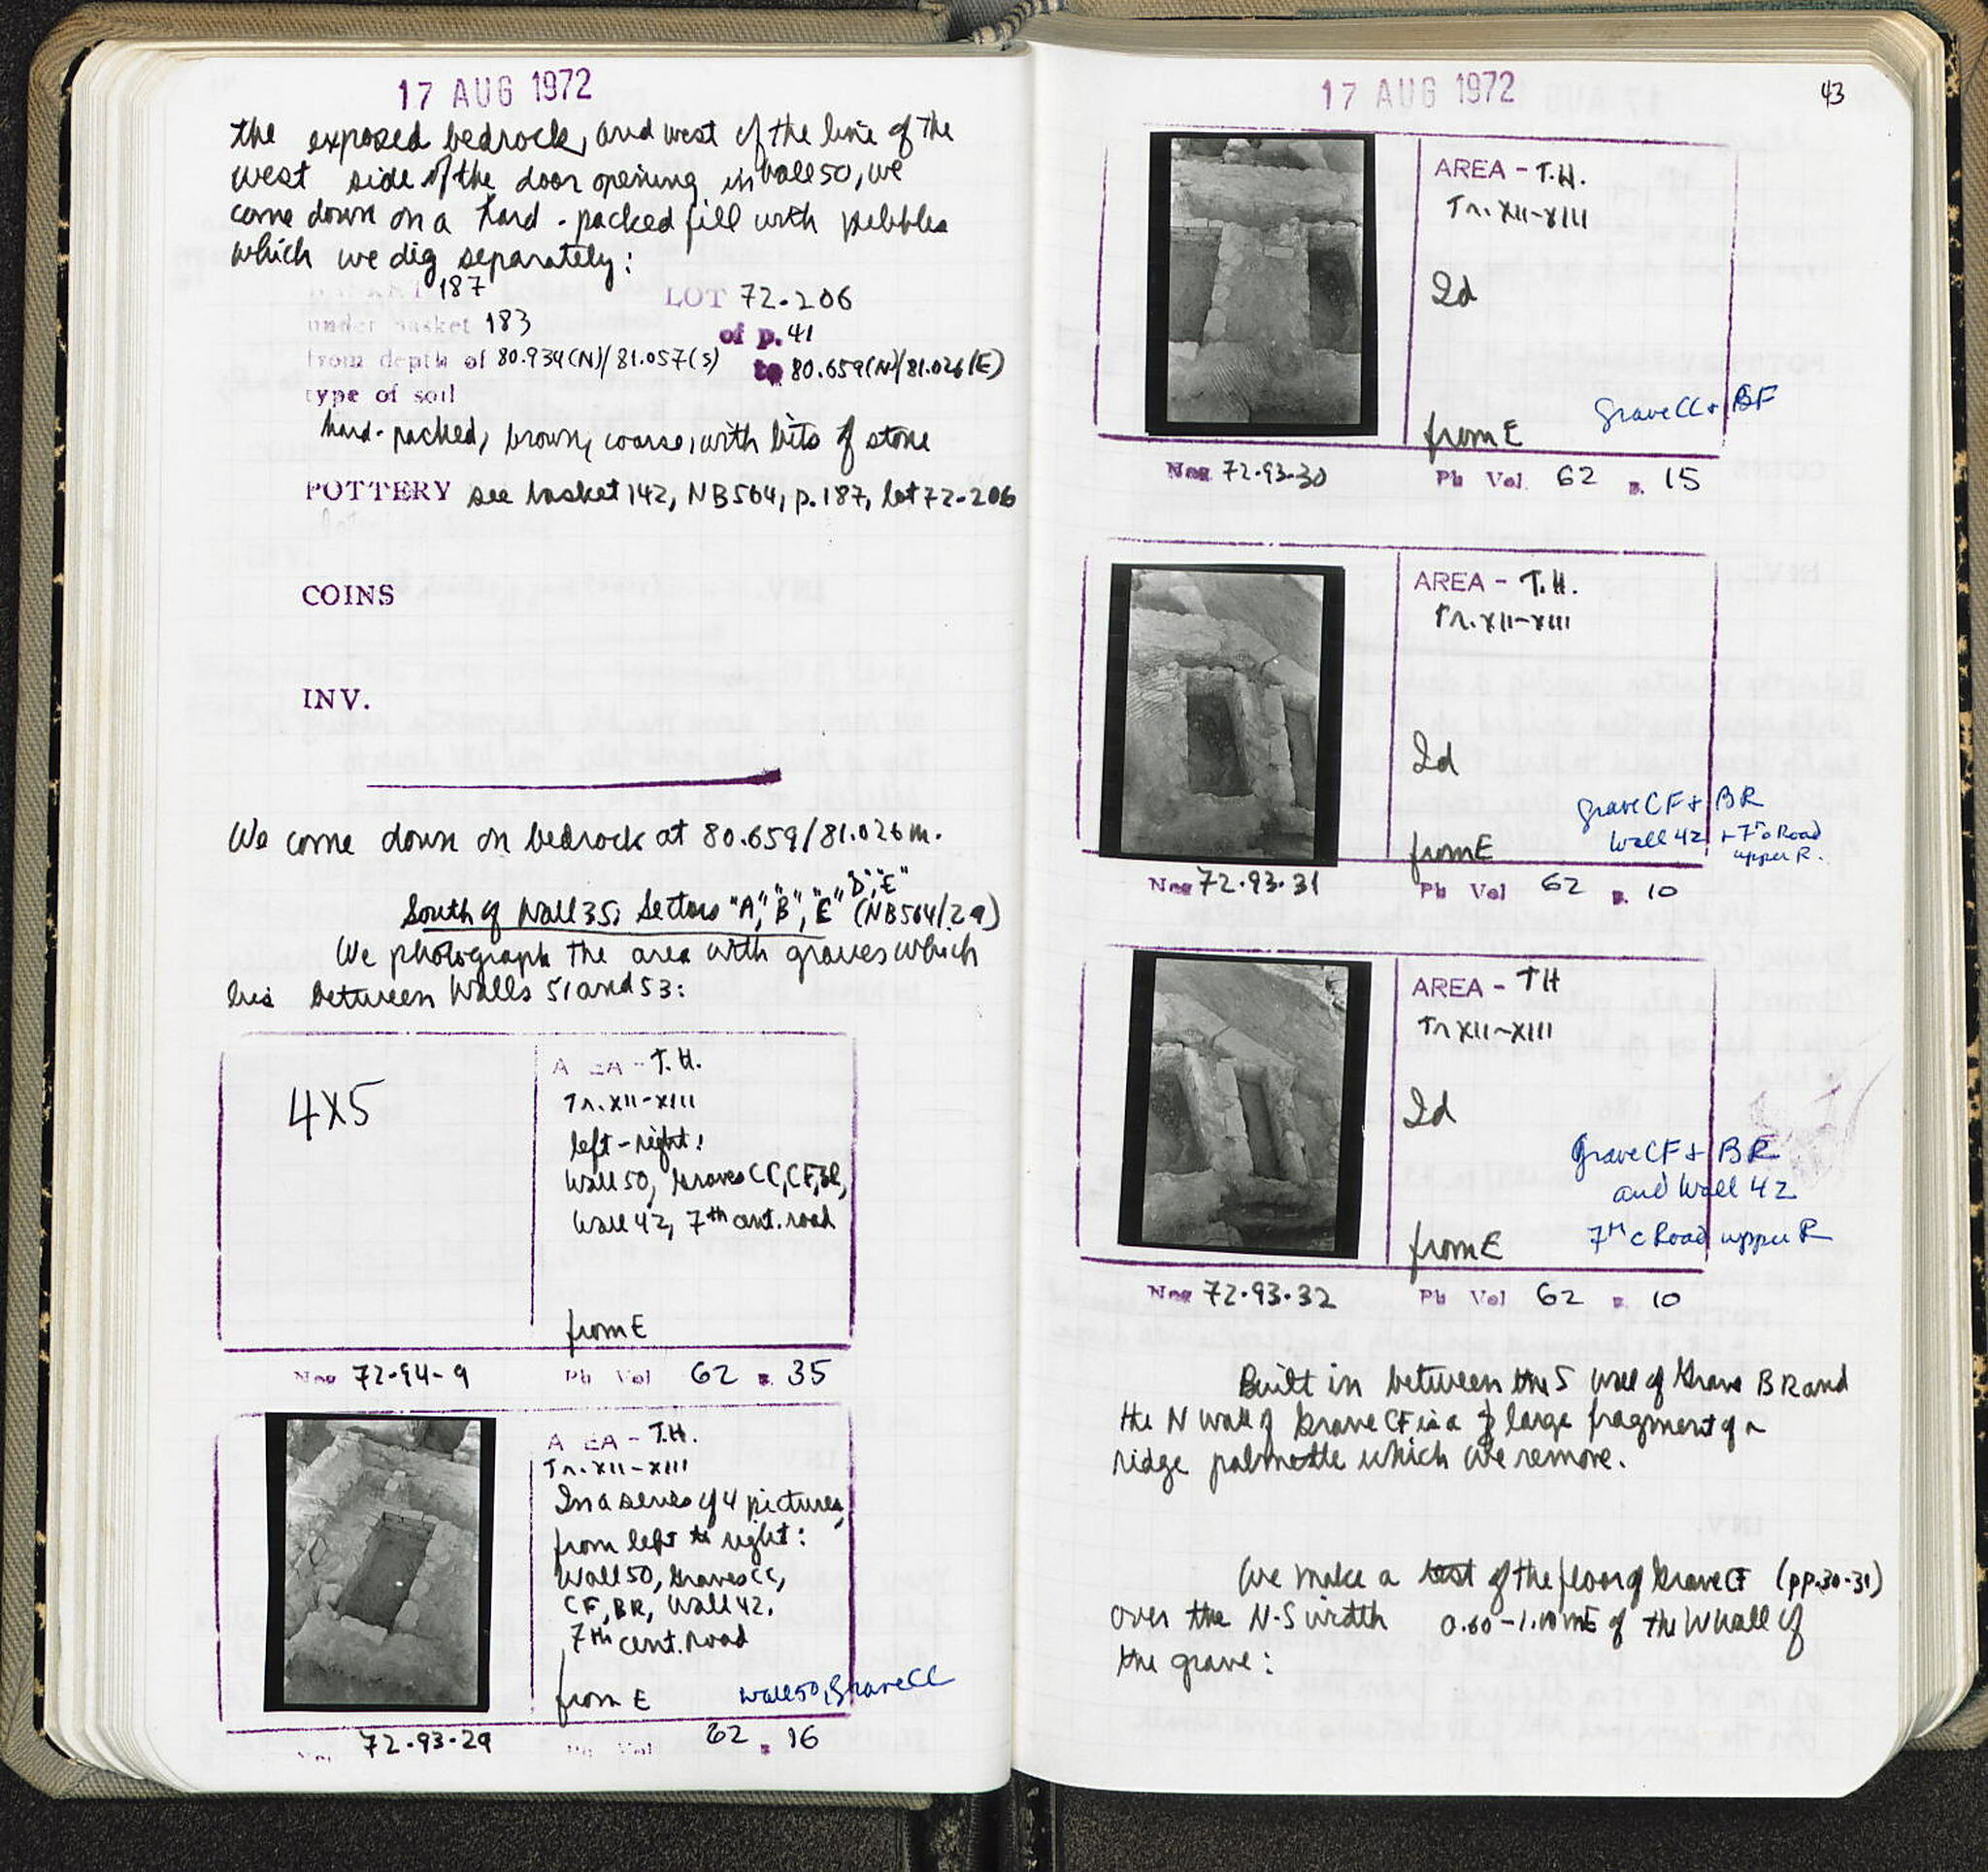 17 AUG 1972
the exposed bedrock, and west of the line of the
west side of the door opening in Wall 50, we
come down on a hard-packed fill with pebbles
which we dig separately:
187 LOT 72-206
under basket 183 of p. 41
from depth of 80.934(N)/81.057(S) to 80.659(N)/81.026(E)
type of soil
hard-packed, brown, coarse, with bits of stone
POTTERY see basket 142, NB564, p.187, lot 72-206
COINS
INV.
We come down on bedrock at 80.659/81.026 m.
"D", "E"
South of Wall 35, Sectors "A", "B", "E" (NB564/2a)
We photograph the area with graves which
lies between Walls 51 and 53:
4X5
AREA - T.H.
Tr. XII-XIII
left-right:
Wall 50, Graves CC, CF, BR,
Wall 42, 7th cent. road
from E
Neg 72-94-9 Ph Vol 62 p. 35
AREA - T.H.
Tr. XII-XIII
In a series of 4 pictures,
from left to right:
Wall 50, Graves CC,
CF, BR, Wall 42,
7th cent. road
from E Wall 50, Grave CC
72-93-29 Ph Vol 62 p. 16
17 AUG 1972
43
AREA - T.H.
Tr. XII-XIII
Id
Grave CC + BF
from E
Neg 72-93-30 Ph Vol. 62 p. 15
AREA - T.H.
Tr. XII-XIII
Id
Grave CF + BR
Wall 42 + 7th c Road
upper R.
from E
Neg 72-93-31 Ph Vol 62 p. 10
AREA - TH
Tr XII-XIII
Id
Grave CF + BR
and Wall 42
from E 7th c Road upper R
Neg 72-93-32 Ph Vol 62 p. 10
Built in between the S wall of Grave BR and
the N wall of Grave CF is a large fragment of a
ridge palmette which we remove.
We make a test of the floor of Grave CF (pp.30-31)
over the N-S width 0.60-1.10 m E of the W wall of
the grave: